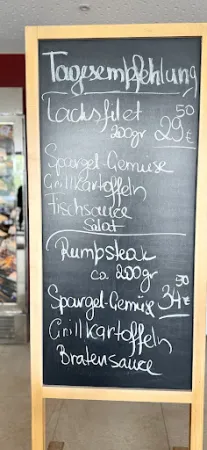 Tagesempfehlung
Lachsfilet
200gr 29 50 €
Spargel-Gemüse
Grillkartoffeln
Fischsauce
Salat
Rumpsteak
ca. 200gr
Spargel-Gemüse 34 50 €
Grillkartoffeln
Bratensauce